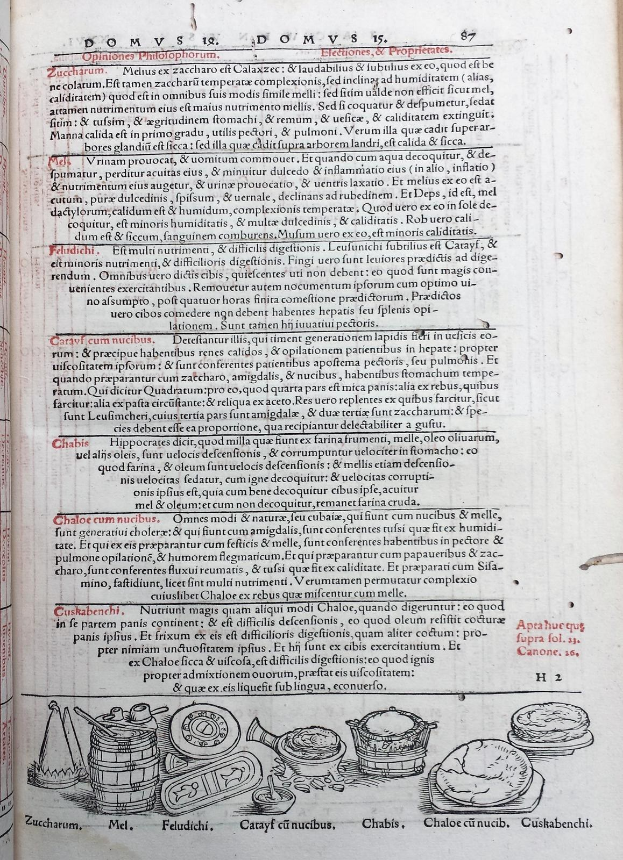 DOMVS 12. DOMVS 15. 87
Opiniones Philosophorum. Electiones, & Proprietates.
Zuccharum. Melius ex zaccharo est Calaxzec: & laudabilius & subtilius ex eo, quod est be
ne colatum. Est tamen zaccharū temperatæ complexionis, sed inclinat ad humiditatem (alias,
caliditatem) quod est in omnibus suis modis simile melli: sed sitim ualde non efficit sicut mel,
attamen nutrimentum eius est maius nutrimento mellis. Sed si coquatur & despumetur, sedat
sitim: & tussim, & ægritudinem stomachi, & renum, & uesicæ, & caliditatem extinguit.
Manna calida est in primo gradu, utilis pectori, & pulmoni. Verum illa quæ cadit super ar-
bores glandiū est sicca: sed illa quæ cadit supra arborem landri, est calida & sicca.
Mel. Vrinam prouocat, & uomitum commouet. Et quando cum aqua decoquitur, & de-
spumatur, perditur acuitas eius, & minuitur dulcedo & inflammatio eius (in alio, inflatio)
& nutrimentum eius augetur, & urinæ prouocatio, & uentris laxatio. Et melius ex eo est a-
cutum, puræ dulcedinis, spissum, & uernale, declinans ad rubedinem. Et Deps, id est, mel
dactylorum, calidum est & humidum, complexionis temperatæ. Quod uero ex eo in sole de-
coquitur, est minoris humiditatis, & multæ dulcedinis, & caliditatis. Rob uero cali-
dum est & siccum, sanguinem comburens. Musum uero ex eo, est minoris caliditatis.
Feludichi. Est multi nutrimenti, & difficilis digestionis. Leusunichi subtilius est Catayf, &
est minoris nutrimenti, & difficilioris digestionis. Fingi uero sunt leuiores prædictis ad dige-
rendum. Omnibus uero dictis cibis, quiescentes uti non debent: eo quod sunt magis con-
uenientes exercitantibus. Remouetur autem nocumentum ipsorum cum optimo ui-
no assumpto, post quatuor horas finita comestione prædictorum. Prædictos
uero cibos comedere non debent habentes hepatis seu splenis opi-
lationem. Sunt tamen hij iuuatiui pectoris.
Catayf cum nucibus. Detestantur illis, qui timent generationem lapidis fieri in uesicis eo-
rum: & præcipue habentibus renes calidos, & opilationem patientibus in hepate: propter
uiscositatem ipsorum: & sunt conferentes patientibus apostema pectoris, seu pulmonis. Et
quando præparantur cum zaccharo, amigdalis, & nucibus, habentibus stomachum tempe-
ratum. Qui dicitur Quadratum: pro eo, quod quarta pars est mica panis: alia ex rebus, quibus
farcitur: alia ex pasta circūstante: & reliqua ex aceto. Res uero replentes ex quibus farcitur, sicut
sunt Leusimcheri, cuius tertia pars sunt amigdalæ, & duæ tertiæ sunt zaccharum: & spe-
cies debent esse ea proportione, qua recipiantur delectabiliter a gustu.
Chabis Hippocrates dicit, quod milla quæ fiunt ex farina frumenti, melle, oleo oliuarum,
uel alijs oleis, sunt uelocis descensionis, & corrumpuntur uelociter in stomacho: eo
quod farina, & oleum sunt uelocis descensionis: & mellis etiam descensio-
nis uelocitas sedatur, cum igne decoquitur: & uelocitas corrupti-
onis ipsius est, quia cum bene decoquitur cibus ipse, acuitur
mel & oleum: et cum non decoquitur, remanet farina cruda.
Chaloe cum nucibus. Omnes modi & naturæ, seu cubaiæ, qui fiunt cum nucibus & melle,
sunt generatiui choleræ: & qui fiunt cum amigdalis, sunt conferentes tussi quæ fit ex humidi-
tate. Et qui ex eis præparantur cum festicis & melle, sunt conferentes habentibus in pectore &
pulmone opilationē, & humorem flegmaticum. Et qui præparantur cum papaueribus & zac-
charo, sunt conferentes fluxui reumatis, & tussi quæ fit ex caliditate. Et præparati cum Sisa-
mino, fastidiunt, licet sint multi nutrimenti. Verumtamen permutatur complexio
cuiuslibet Chaloe ex rebus quæ miscentur cum melle.
Cuskabenchi. Nutriunt magis quam aliqui modi Chaloe, quando digeruntur: eo quod
in se partem panis continent: & est difficilis descensionis, eo quod oleum resistit cocturæ
panis ipsius. Et frixum ex eis est difficilioris digestionis, quam aliter coctum: pro-
pter nimiam unctuositatem ipsius. Et hij sunt ex cibis exercitantium. Et
ex Chaloe sicca & uiscosa, est difficilis digestionis: eo quod ignis
propter admixtionem ouorum, præstat eis uiscositatem:
& quæ ex eis liquefit sub lingua, econuerso.
Apta huc quę
supra fol. 23.
Canone. 26.
H 2
Zuccharum. Mel. Feludichi. Catayf cū nucibus. Chabis. Chaloe cū nucib. Cuskabenchi.